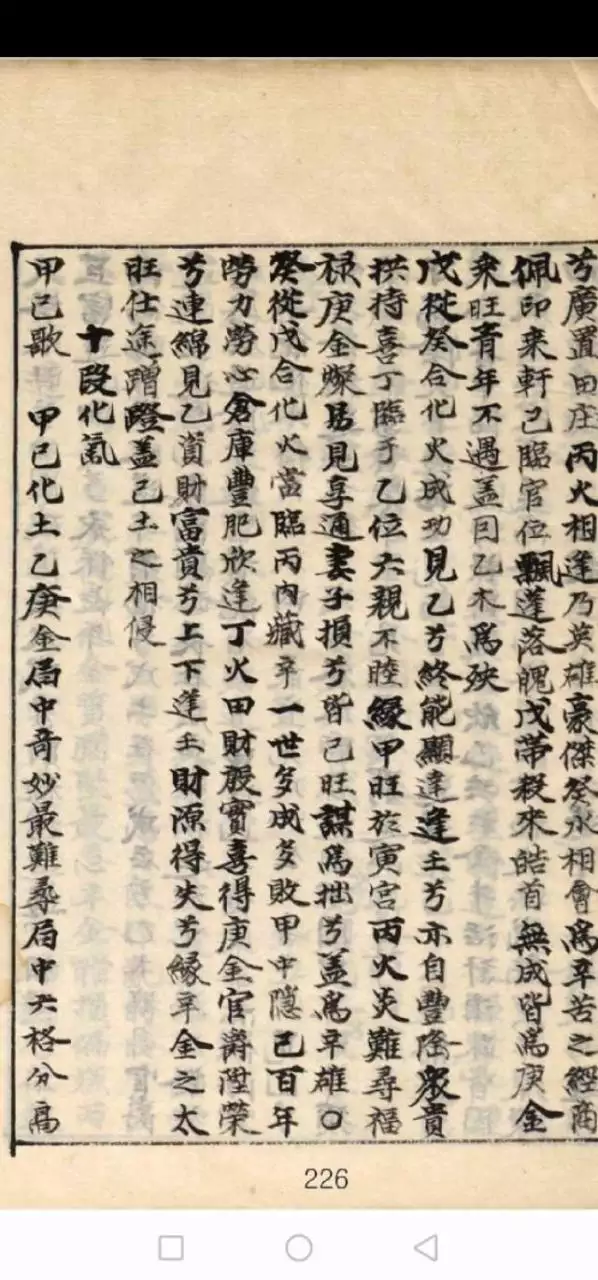 兮廣置田庄丙火相逢乃英雄豪傑癸水相會為辛苦之經商
佩印乘軒己臨官位飄蓬落魄戊帶殺來皓首無成皆為庚金
乘旺青年不遇盖因乙木為殃
戊從癸合化火成功見乙兮終能顯達逢壬兮亦自豐隆衆貴
拱持喜丁臨于乙位六親不睦緣甲旺於寅宮丙火炎難尋福
禄庚金燦易見享通妻子損兮皆己旺謀為拙兮盖為辛雄○
癸從戊合化火當臨丙內藏辛一世多成多敗甲中隱己百年
勞力勞心倉庫豐肥欣逢丁火田財殷實喜得庚金官爵陞榮
兮連綿見乙資財富貴兮上下逢壬財源得失兮緣辛金之太
旺仕途蹭蹬盖己土之相侵
十段化氣
甲己歌　甲己化土乙庚金局中奇妙最難尋局中六格分高
226